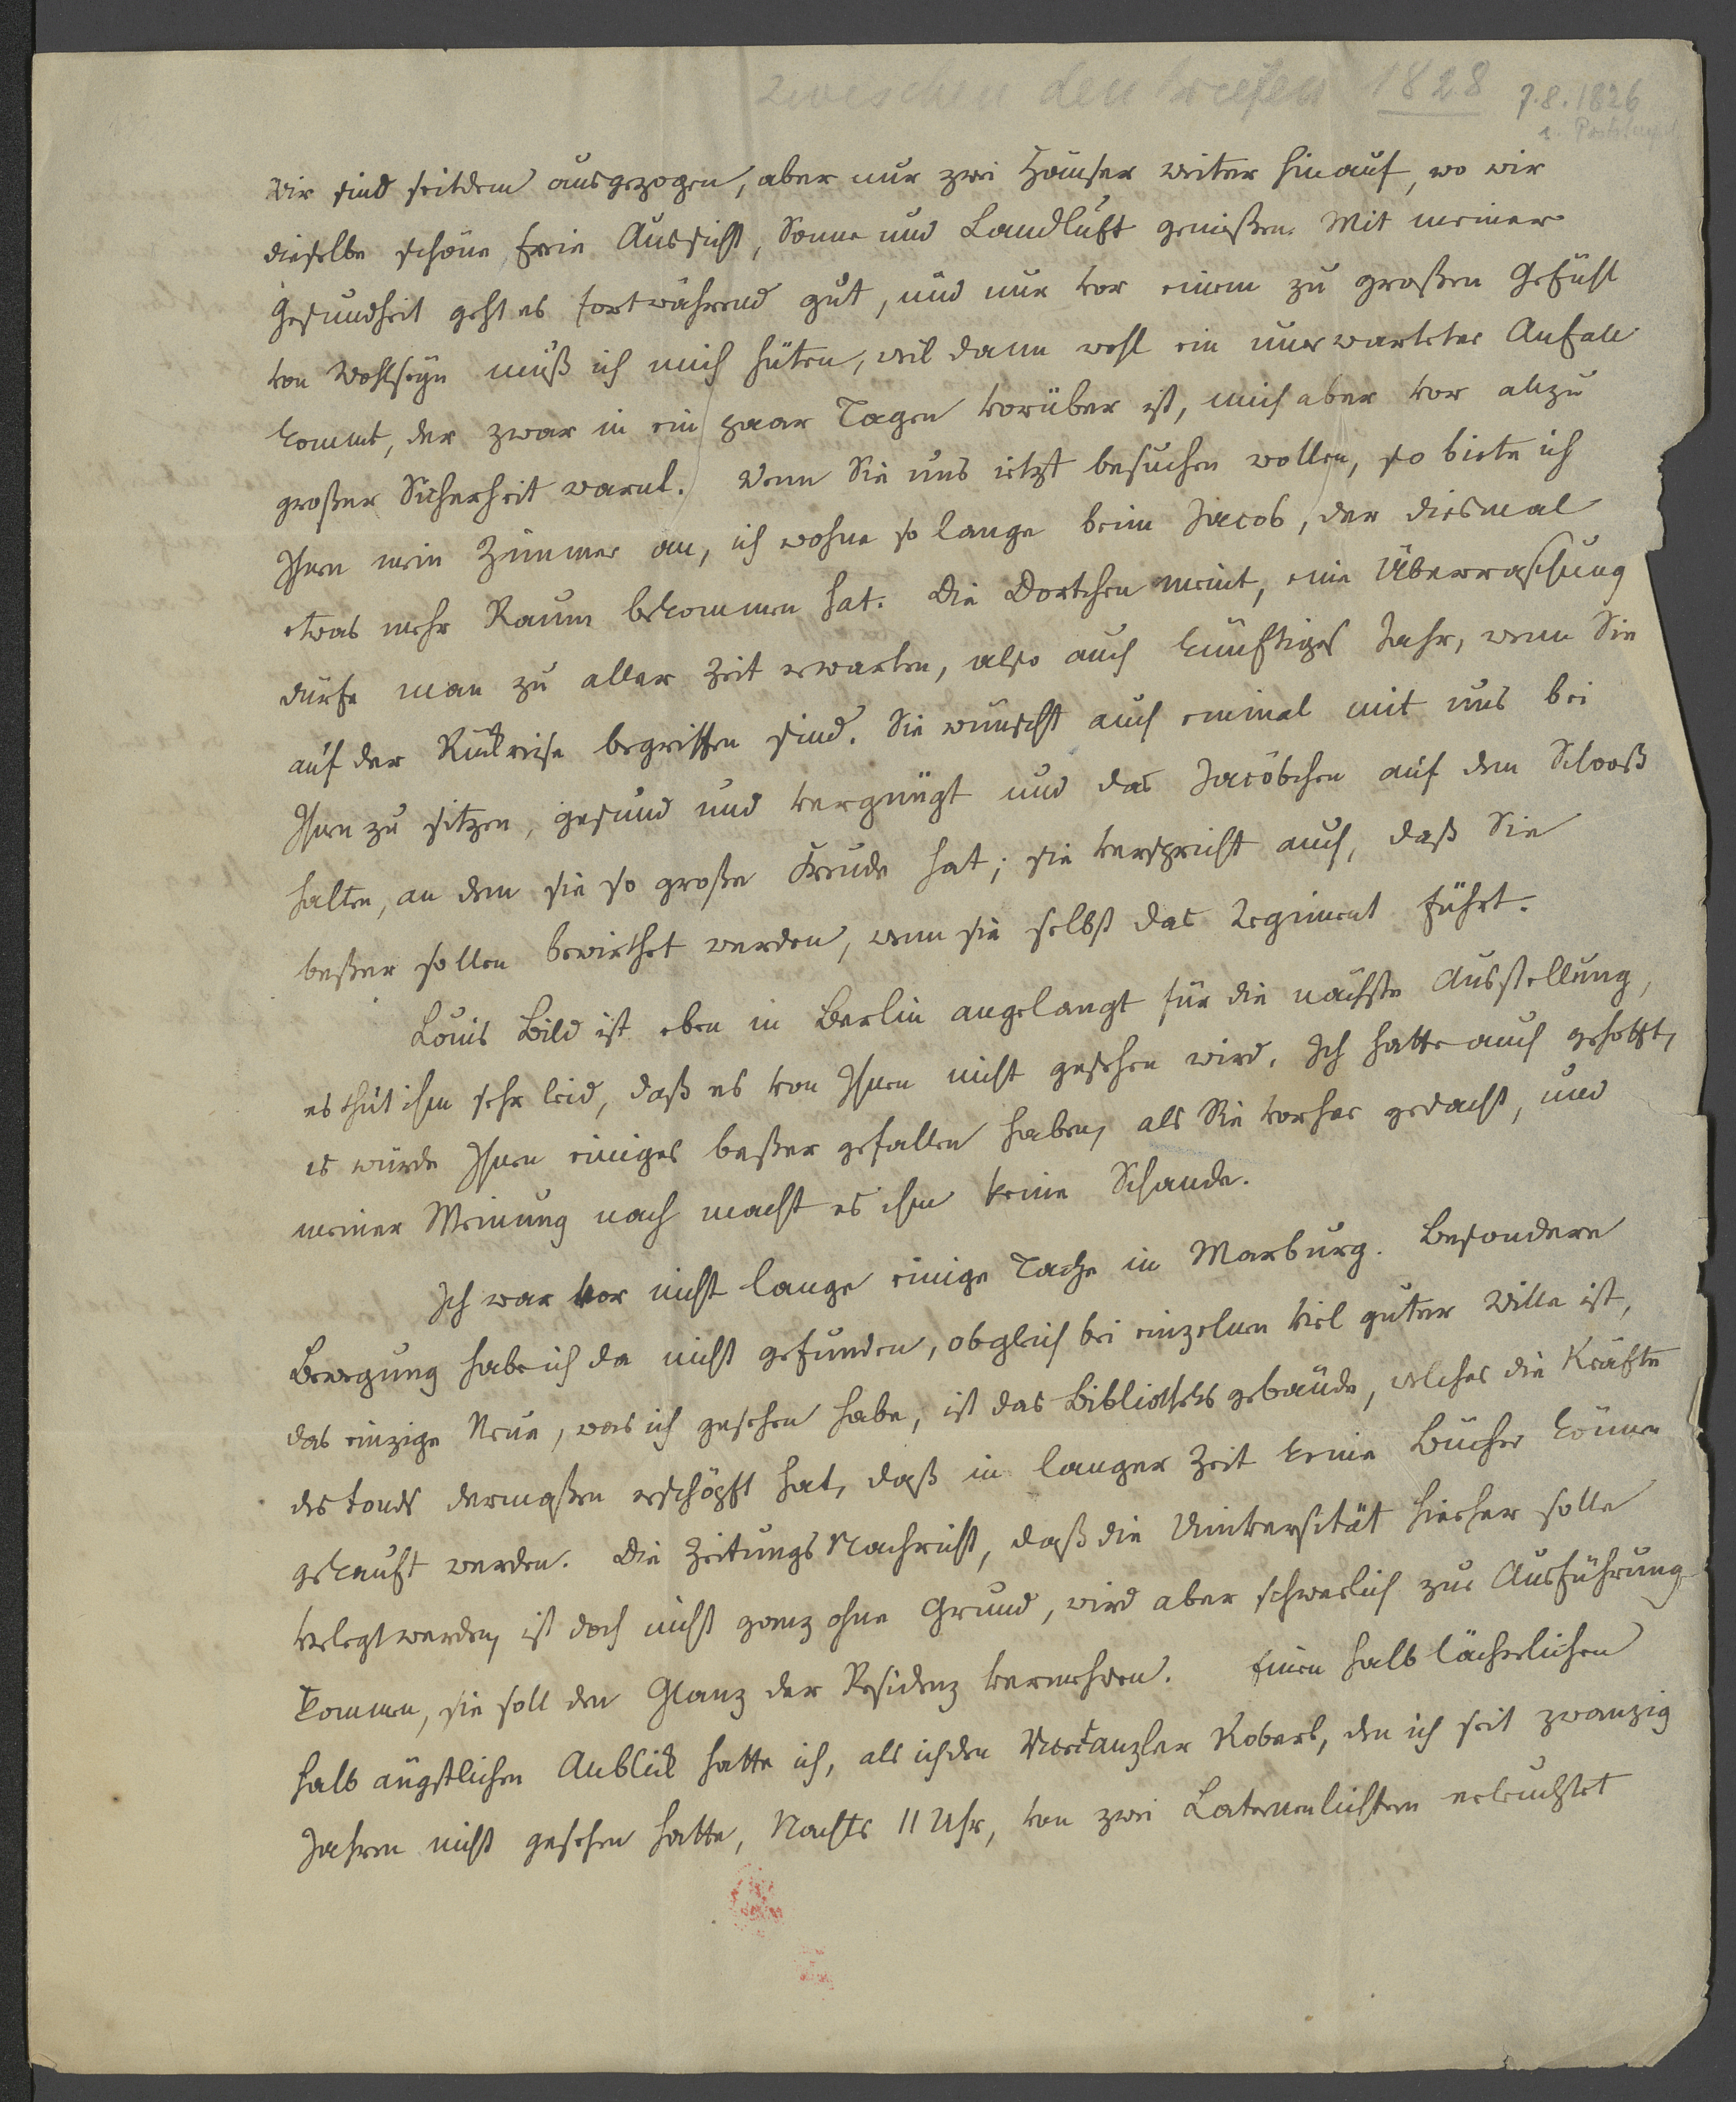 zwischen den briefen 1828 7.8.1826
s. Poststempel
Wir sind seitdem ausgezogen, aber nur zwei Häuser weiter hinauf, wo wir
dieselbe schöne, freie Aussicht, Sonne und Landluft genießen. Mit meiner
Gesundheit geht es fortwährend gut, und nur vor einem zu großen Gefühl
von Wohlseyn muß ich mich hüten, weil dann wohl ein unerwarteter Anfall
kommt, der zwar in ein paar Tagen vorüber ist, mich aber vor allzu
großer Sicherheit warnt. Wenn Sie uns jetzt besuchen wollen, so biete ich
Ihnen mein Zimmer an, ich wohne so lange beim Jacob, der diesmal
etwas mehr Raum bekommen hat. Die Dortchen meint, eine Überraschung
dürfe man zu aller Zeit erwarten, also auch künftiges Jahr, wenn Sie
auf der Rückreise begriffen sind. Sie wünscht auch einmal mit uns bei
Ihnen zu sitzen, gesund und vergnügt und das Jacöbchen auf dem Schooß
halten, an dem sie so große Freude hat; sie verspricht auch, daß Sie
beßer sollen bewirthet werden, wenn sie selbst das Regiment führt.
Louis Bild ist eben in Berlin angelangt für die nächste Ausstellung,
es thut ihm sehr leid, daß es von Ihnen nicht gesehen wird. Ich hatte auch gehofft,
es würde Ihnen einiges beßer gefallen haben, als Sie vorher gedacht, und
meiner Meinung nach macht es ihm keine Schande.
Ich war vor nicht lange einige Tage in Marburg. Besondere
Bewegung habe ich da nicht gefunden, obgleich bei einzelnen viel guter Wille ist,
das einzige Neue, was ich gesehen habe, ist das Bibliotheksgebäude, welches die Kräfte
des Fonds dermaßen erschöpft hat, daß in langer Zeit keine Bücher können
gekauft werden. Die Zeitungs Nachricht, daß die Universität hierher solle
verlegt werden, ist doch nicht ganz ohne Grund, wird aber schwerlich zur Ausführung
kommen, sie soll den Glanz der Residenz vermehren. Einen halb lächerlichen
halb ängstlichen Anblick hatte ich, als ich den Vicecanzler Robert, den ich seit zwanzig
Jahren nicht gesehen hatte, Nachts 11 Uhr, von zwei Laternenlichtern erleuchtet